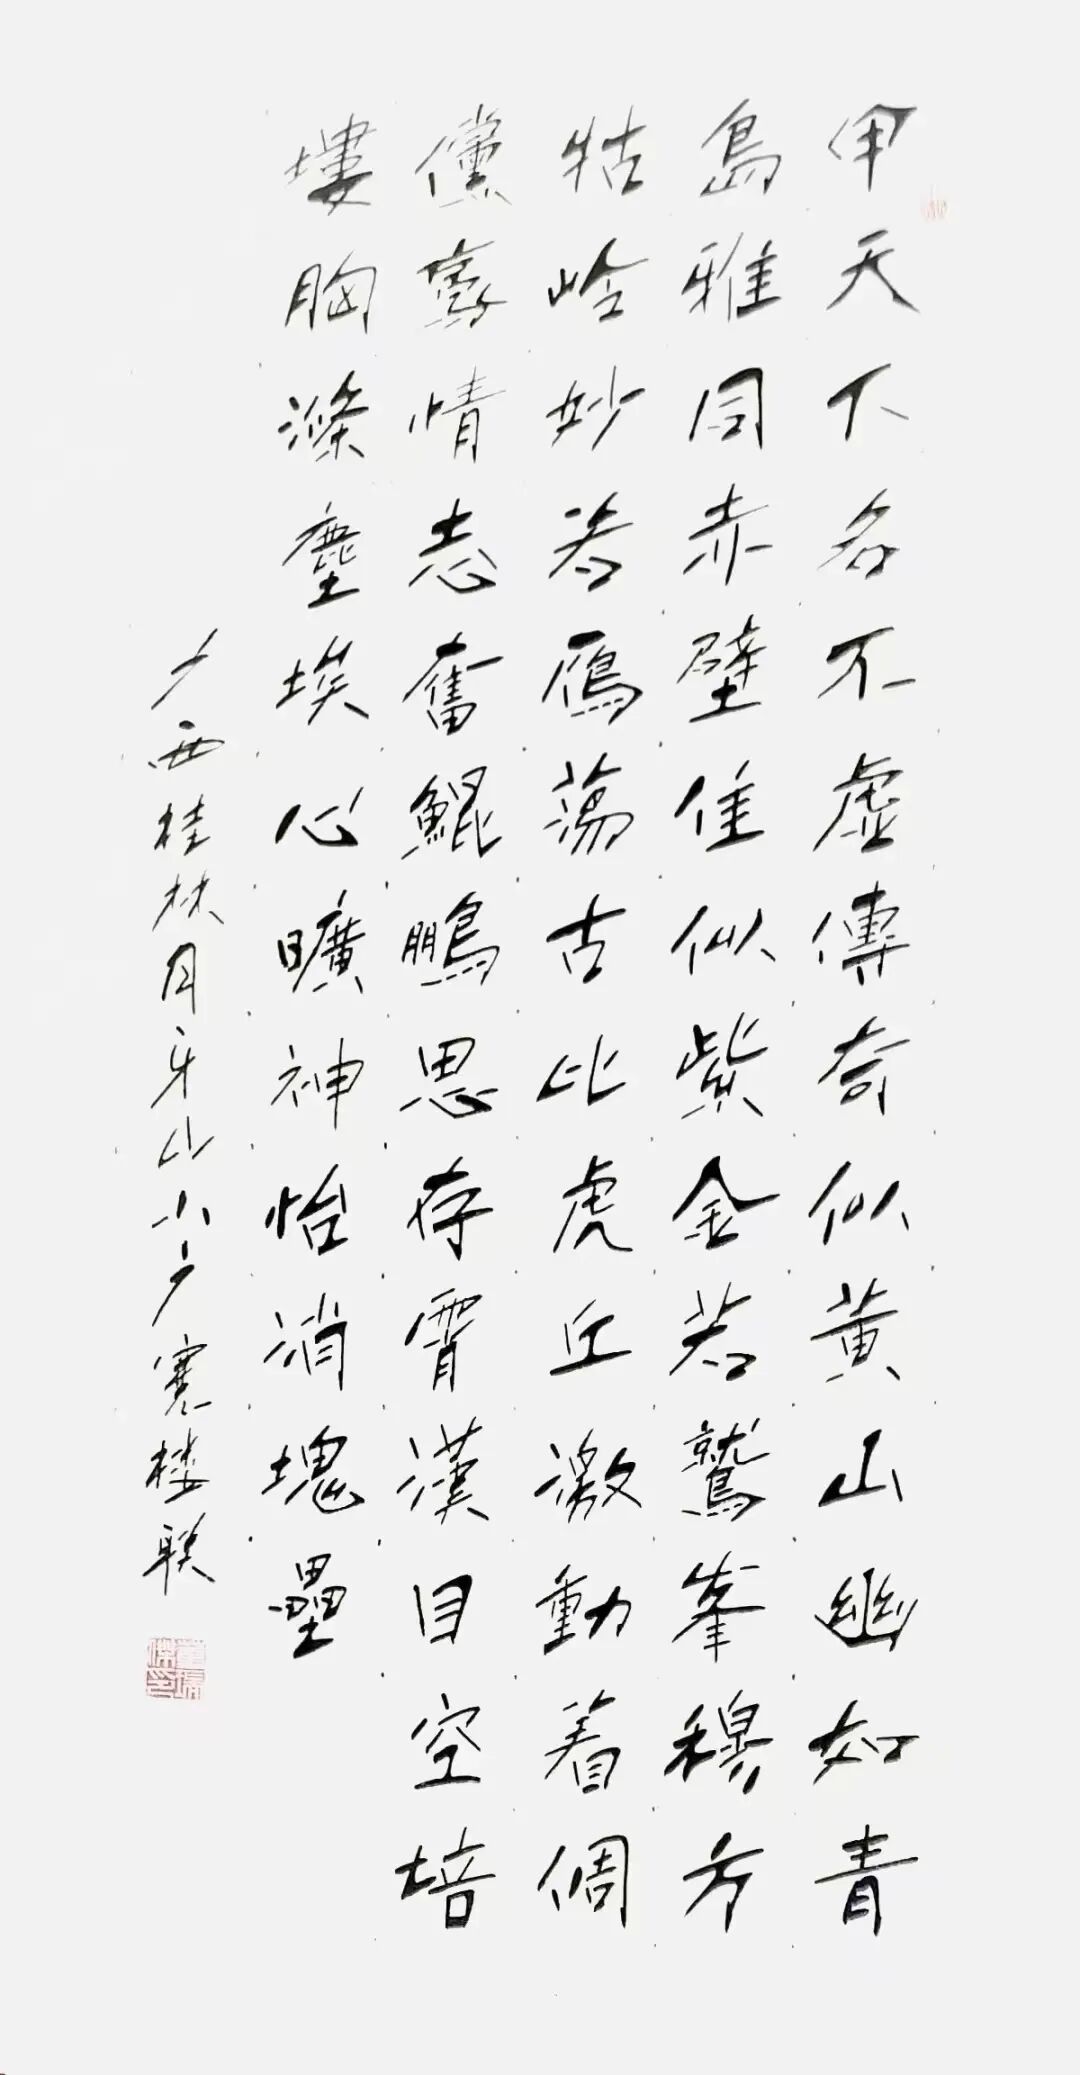 甲天下名不虛傳奇似黄山幽如青
島雅同赤壁佳似紫金若鷲峯穆方
牯岭妙若鴈蕩古比虎丘激動着倜
儻豪情志奮鯤鵬思存霄漢目空培
塿胸滌塵埃心曠神怡消塊壘
广西桂林月牙山小广寒楼联